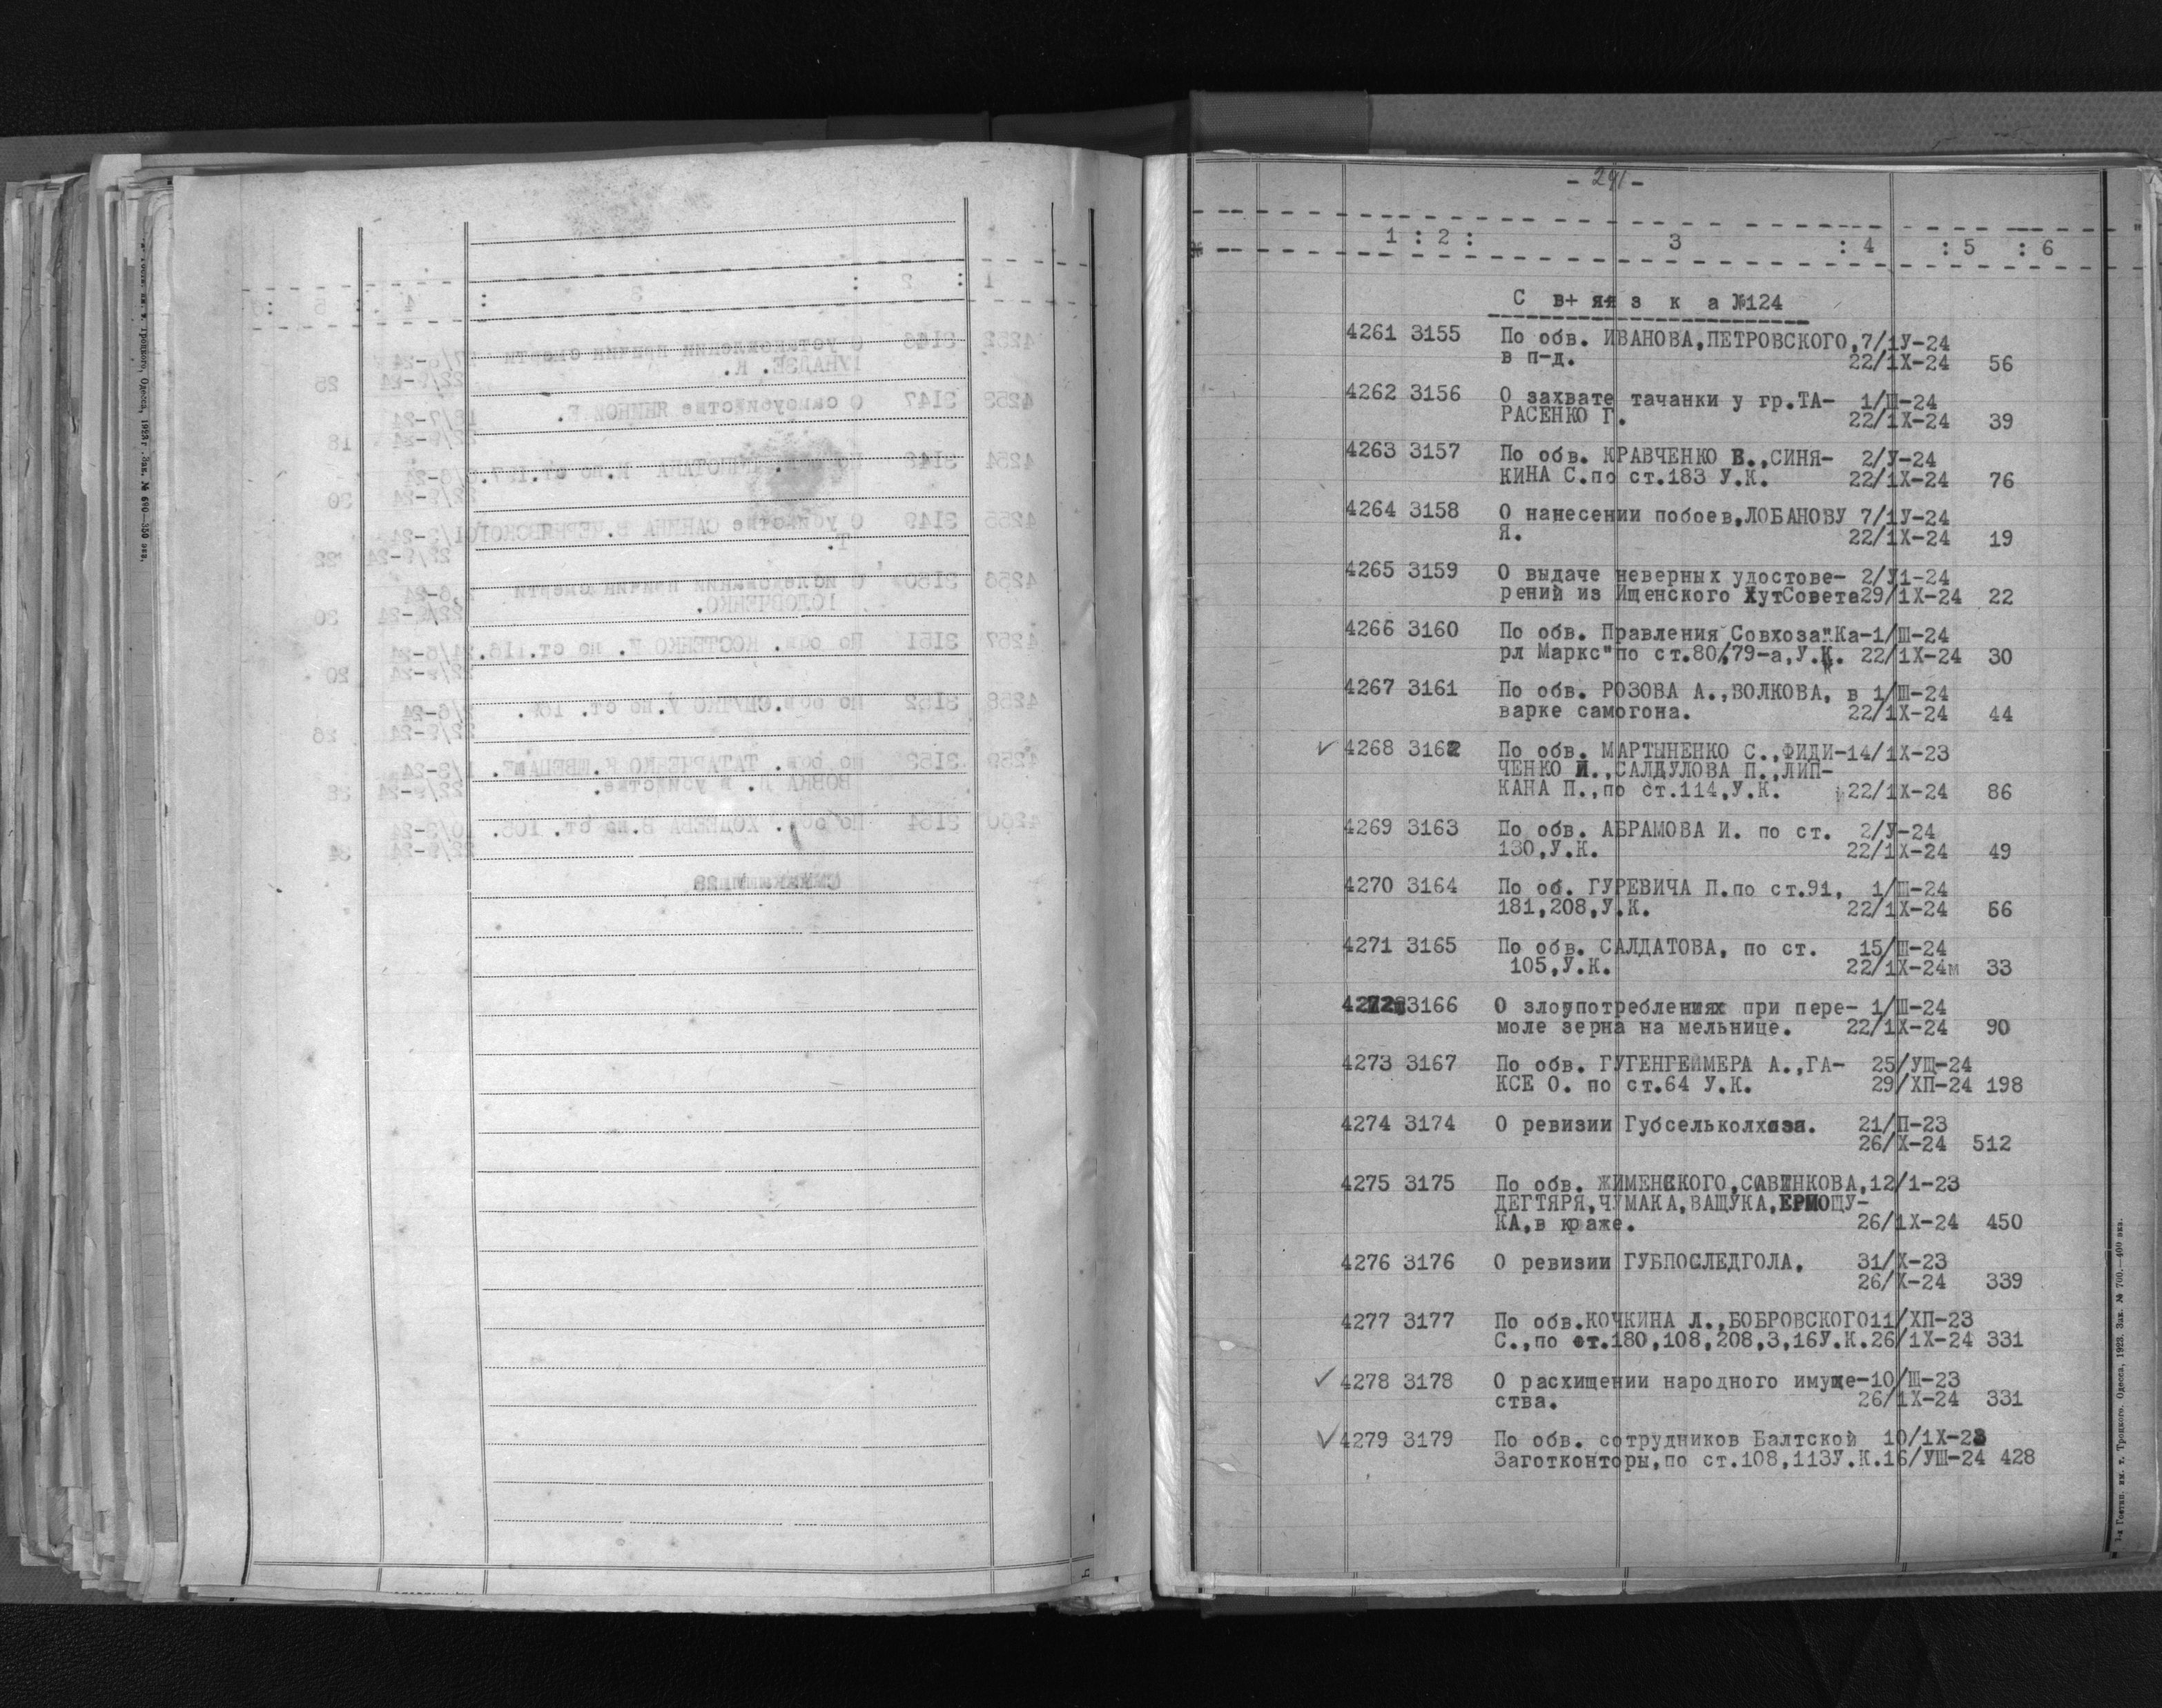 - 241 -
1 : 2 : 3 : 4 : 5 : 6
С в я з к а №124
4261 3155 По обв. ИВАНОВА,ПЕТРОВСКОГО,7/1У-24
в п-д. 22/1Х-24 56
4262 3156 О захвате тачанки у гр.ТА- 1/Ш-24
РАСЕНКО Г. 22/1Х-24 39
4263 3157 По обв. КРАВЧЕНКО Е.,СИНЯ- 2/У-24
КИНА С.по ст.183 У.К. 22/1Х-24 76
4264 3158 О нанесении побоев,ЛОБАНОВУ 7/1У-24
Я. 22/1Х-24 19
4265 3159 О выдаче неверных удостове- 2/У1-24
рений из Ищенского ХутСовета29/1Х-24 22
4266 3160 По обв. Правления Совхоза"Ка-1/Ш-24
рл Маркс"по ст.80,79-а,У.К. 22/1Х-24 30
4267 3161 По обв. РОЗОВА А.,ВОЛКОВА, в 1/Ш-24
варке самогона. 22/1Х-24 44
4268 3162 По обв. МАРТЫНЕНКО С.,ФИДИ-14/1Х-23
ЧЕНКО И.,САЛДУЛОВА П.,ЛИП-
КАНА П.,по ст.114,У.К. 22/1Х-24 86
4269 3163 По обв. АБРАМОВА И. по ст. 2/У-24
130,У.К. 22/1Х-24 49
4270 3164 По об. ГУРЕВИЧА П.по ст.91, 1/Ш-24
181,208,У.К. 22/1Х-24 66
4271 3165 По обв. САЛДАТОВА, по ст. 15/Ш-24
105,У.К. 22/1Х-24м 33
4272 3166 О злоупотреблениях при пере- 1/Ш-24
моле зерна на мельнице. 22/1Х-24 90
4273 3167 По обв. ГУГЕНГЕЙМЕРА А.,ГА- 25/УШ-24
КСЕ О. по ст.64 У.К. 29/ХП-24 198
4274 3174 О ревизии Губсельколхоза. 21/П-23
26/Х-24 512
4275 3175 По обв. ЖИМЕНСКОГО,САВЕНКОВА,12/1-23
ДЕГТЯРЯ,ЧУМАКА,ВАЩУКА,ЕРМОЩУ-
КА,в краже. 26/1Х-24 450
4276 3176 О ревизии ГУБПОСЛЕДГОЛА. 31/Х-23
26/Х-24 339
4277 3177 По обв.КОЧКИНА Л.,БОБРОВСКОГО11/ХП-23
С.,по ст.180,108,208,3,16У.К.26/1Х-24 331
4278 3178 О расхищении народного имуще-10/Ш-23
ства. 26/1Х-24 331
4279 3179 По обв. сотрудников Балтской 10/1Х-23
Заготконторы,по ст.108,113У.К.16/УШ-24 428
1-я Гостип. им. т. Троцкого. Одесса, 1923. Зак. № 700.—400 экз.